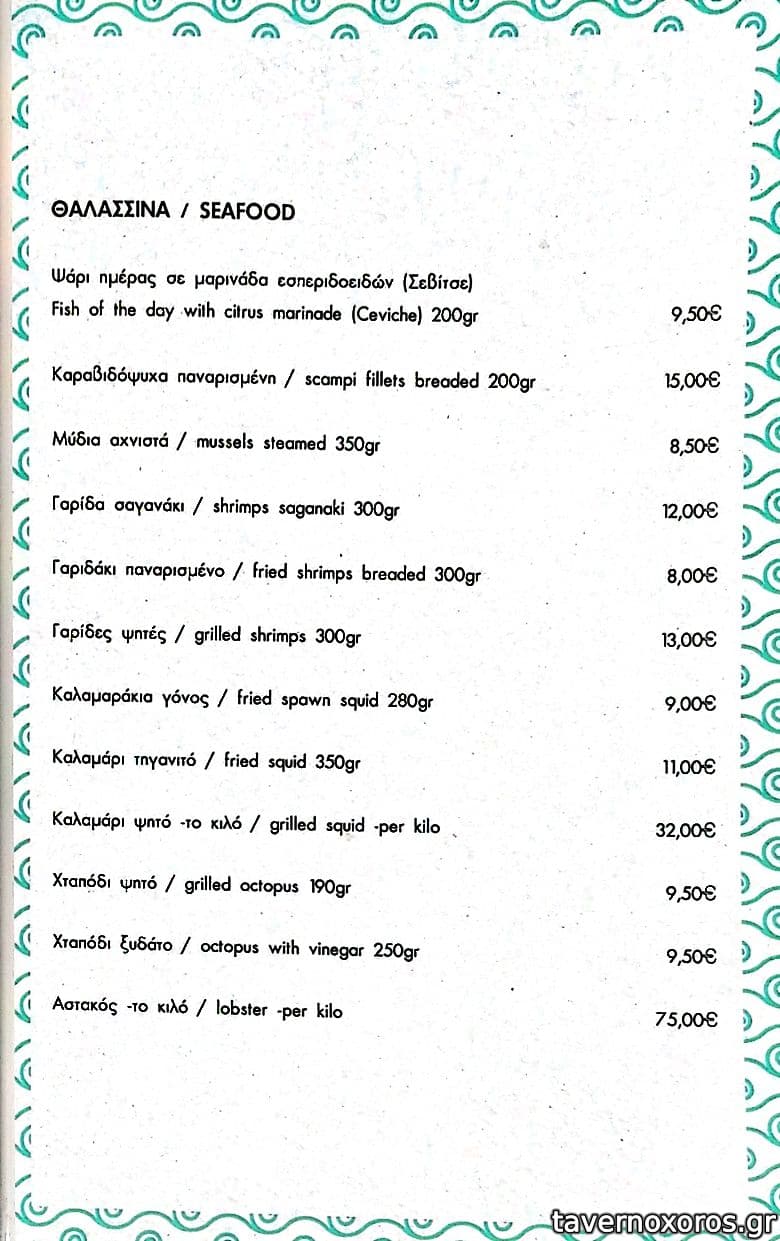 ΘΑΛΑΣΣΙΝΑ / SEAFOOD
Ψάρι ημέρας σε μαρινάδα εσπεριδοειδών (Σεβίτσε)
Fish of the day with citrus marinade (Ceviche) 200gr 9,50€
Καραβιδόψυχα παναρισμένη / scampi fillets breaded 200gr 15,00€
Μύδια αχνιστά / mussels steamed 350gr 8,50€
Γαρίδα σαγανάκι / shrimps saganaki 300gr 12,00€
Γαριδάκι παναρισμένο / fried shrimps breaded 300gr 8,00€
Γαρίδες ψητές / grilled shrimps 300gr 13,00€
Καλαμαράκια γόνος / fried spawn squid 280gr 9,00€
Καλαμάρι τηγανιτό / fried squid 350gr 11,00€
Καλαμάρι ψητό -το κιλό / grilled squid -per kilo 32,00€
Χταπόδι ψητό / grilled octopus 190gr 9,50€
Χταπόδι ξυδάτο / octopus with vinegar 250gr 9,50€
Αστακός -το κιλό / lobster -per kilo 75,00€
tavernoxoros.gr